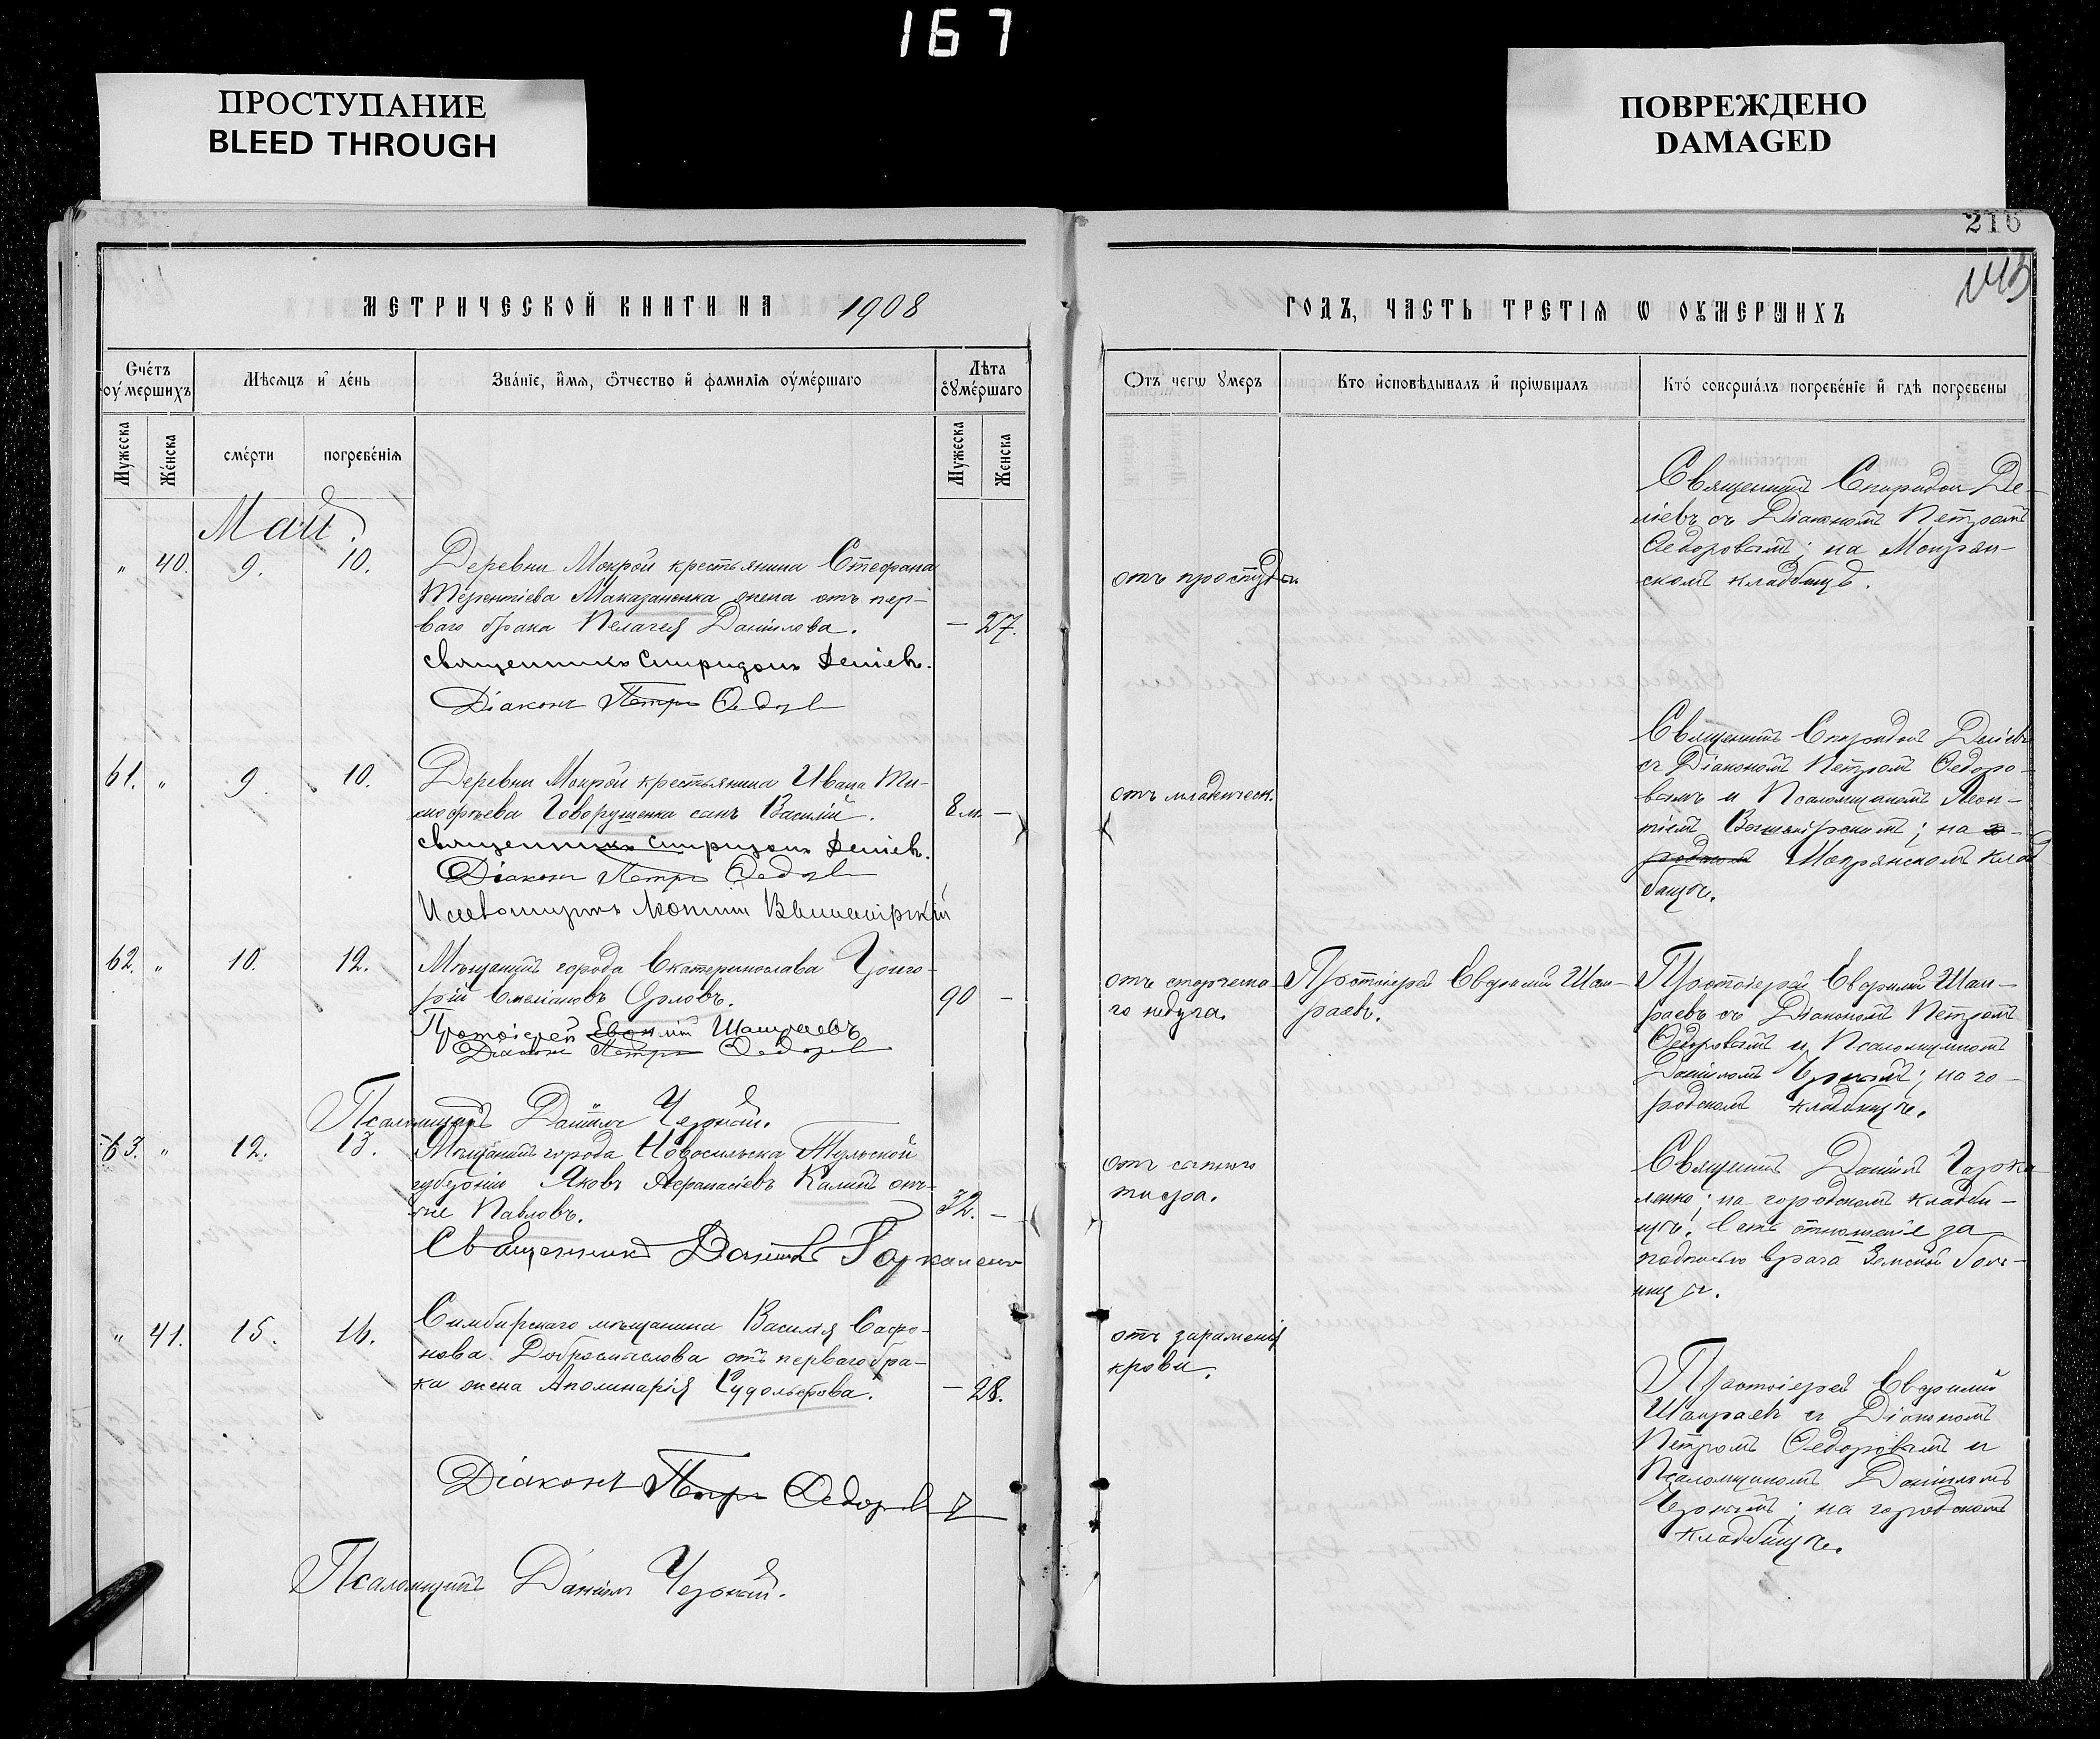 167
ПРОСТУПАНИЕ
BLEED THROUGH
ПОВРЕЖДЕНО
DAMAGED
216
МЕТРИЧЕСКОЙ КНИГИ НА 1908
ГОДЪ, ЧАСТЬ ТРЕТІѦ Ѡ ОУМЕРШИХЪ
Счетъ оумершихъ
Мѣсѧцъ и день
Званіе, имѧ, отчество и фамиліѧ оумершаго
Лѣта оумершаго
Мужеска
Женска
смерти
погребеніѧ
Мужеска
Женска
Отъ чегѡ умеръ
Кто исповѣдывалъ и пріѡбщалъ
Кто совершалъ погребеніе и гдѣ погребены
Май.
" 40. 9. 10.
Деревни Мокрой крестьянина Стефана
Терентіева Маказаненка жена отъ пер-
ваго брака Пелагея Даніилова.
— 27.
священникъ Спиридонъ Деліевъ.
Діаконъ Петръ Ѳедоровъ
отъ простуды
Священникъ Спиридон Де-
ліевъ съ Діакономъ Петромъ
Ѳедоровымъ; на Мокрян-
скомъ кладбищѣ.
61. " 9. 10.
Деревни Мокрой крестьянина Ивана Ти-
мофѣева Говорущенка сынъ Василій.
8 м. —
священникъ Спиридонъ Деліевъ.
Діаконъ Петръ Ѳедоровъ
отъ младенческ.
Священникъ Спиридонъ Деліевъ
съ Діакономъ Петромъ Ѳедоро-
вымъ и Псаломщикомъ Леон-
тіемъ
на
Мокрянскомъ клад
бищѣ.
62. " 10. 12.
Мѣщанинъ города Екатеринослава Григо-
рій Емеліановъ Орловъ.
90 —
Протоіерей Евѳимій Шамраевъ
Діаконъ Петръ Ѳедоровъ
Псаломщикъ Даніилъ Черный.
отъ старческа-
го недуга.
Протоіерей Евфимій Шам-
раевъ.
Протоіерей Евфимій Шам-
раевъ съ Діакономъ Петромъ
Ѳедоровымъ и Псаломщикомъ
Даніиломъ Чернымъ; на го-
родскомъ кладбищѣ.
63. " 12. 13.
Мѣщанинъ города Новосильска Тульской
губерніи Яковъ Афанасіевъ
Павловъ.
32. —
Священникъ Даніилъ Гаркаленко
отъ сыпного
тифа.
Священникъ Даніилъ Гарка-
ленко; на городскомъ кладби-
щѣ. Есть отношеніе за
подписью врача Земской боль-
ницы.
" 41. 15. 16.
Симбирскаго мѣщанина Василія Сафо-
нова Добросмыслова отъ перваго бра-
ка жена Аполинарія
— 28.
Діаконъ Петръ Ѳедоровъ
Псаломщикъ Даніилъ Черный.
отъ зараженія
крови.
Протоіерей Евфимій
Шамраевъ съ Діакономъ
Петромъ Ѳедоровымъ и
Псаломщикомъ Даніиломъ
Чернымъ; на городскомъ
кладбищѣ.